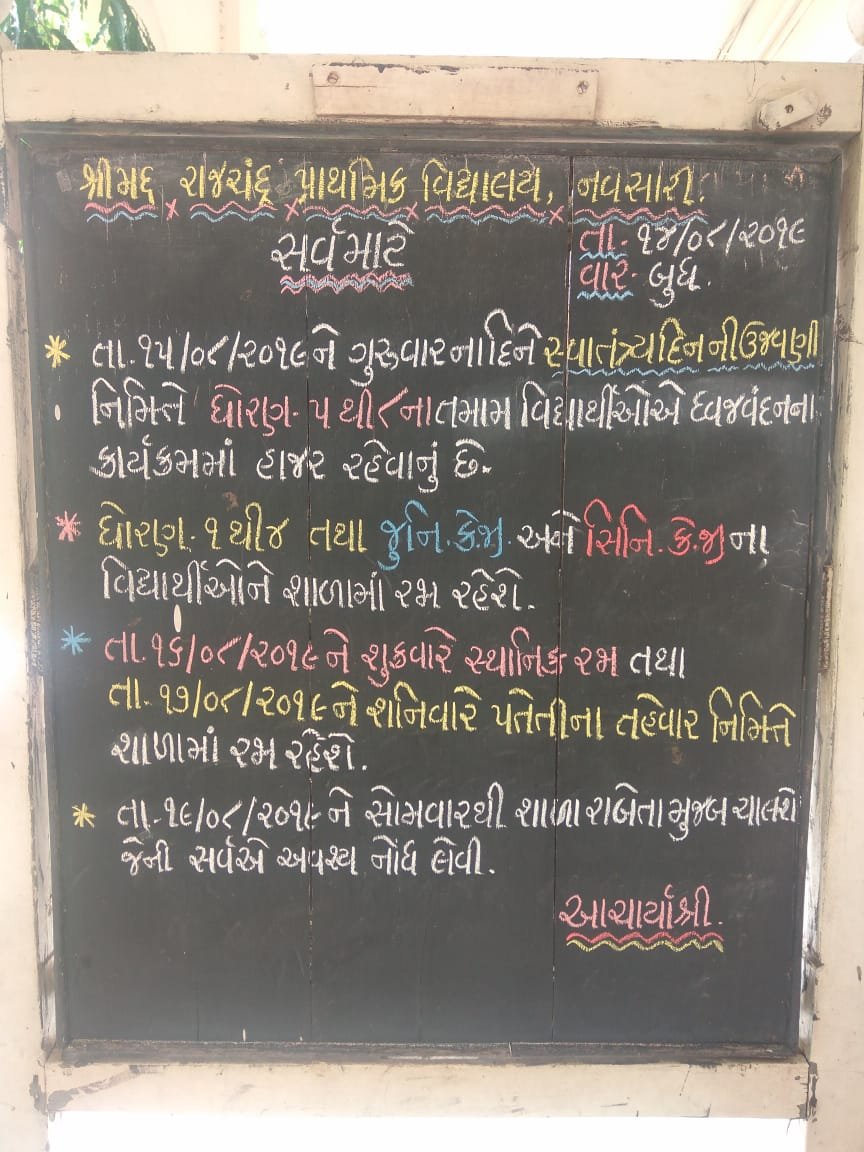 શ્રીમદ્ રાજચંદ્ર પ્રાથમિક વિદ્યાલય, નવસારી.
સર્વ માટે
તા. ૧૪/૦૮/૨૦૧૯
વાર. બુધ.
* તા. ૧૫/૦૮/૨૦૧૯ ને ગુરુવારના દિને સ્વાતંત્ર્યદિન ની ઉજવણી
નિમિત્તે ધોરણ. ૫ થી ૮ ના તમામ વિદ્યાર્થીઓએ ધ્વજવંદનના
કાર્યક્રમમાં હાજર રહેવાનું છે.
* ધોરણ. ૧ થી ૪ તથા જુનિ. કે.જી. અને સિનિ. કે.જી ના
વિદ્યાર્થીઓને શાળામાં રજા રહેશે.
* તા. ૧૬/૦૮/૨૦૧૯ ને શુક્રવારે સ્થાનિક રજા તથા
તા. ૧૭/૦૮/૨૦૧૯ ને શનિવારે પતેતીના તહેવાર નિમિત્તે
શાળામાં રજા રહેશે.
* તા. ૧૯/૦૮/૨૦૧૯ ને સોમવારથી શાળા રાબેતા મુજબ ચાલશે
જેની સર્વએ અવશ્ય નોંધ લેવી.
આચાર્યાશ્રી.